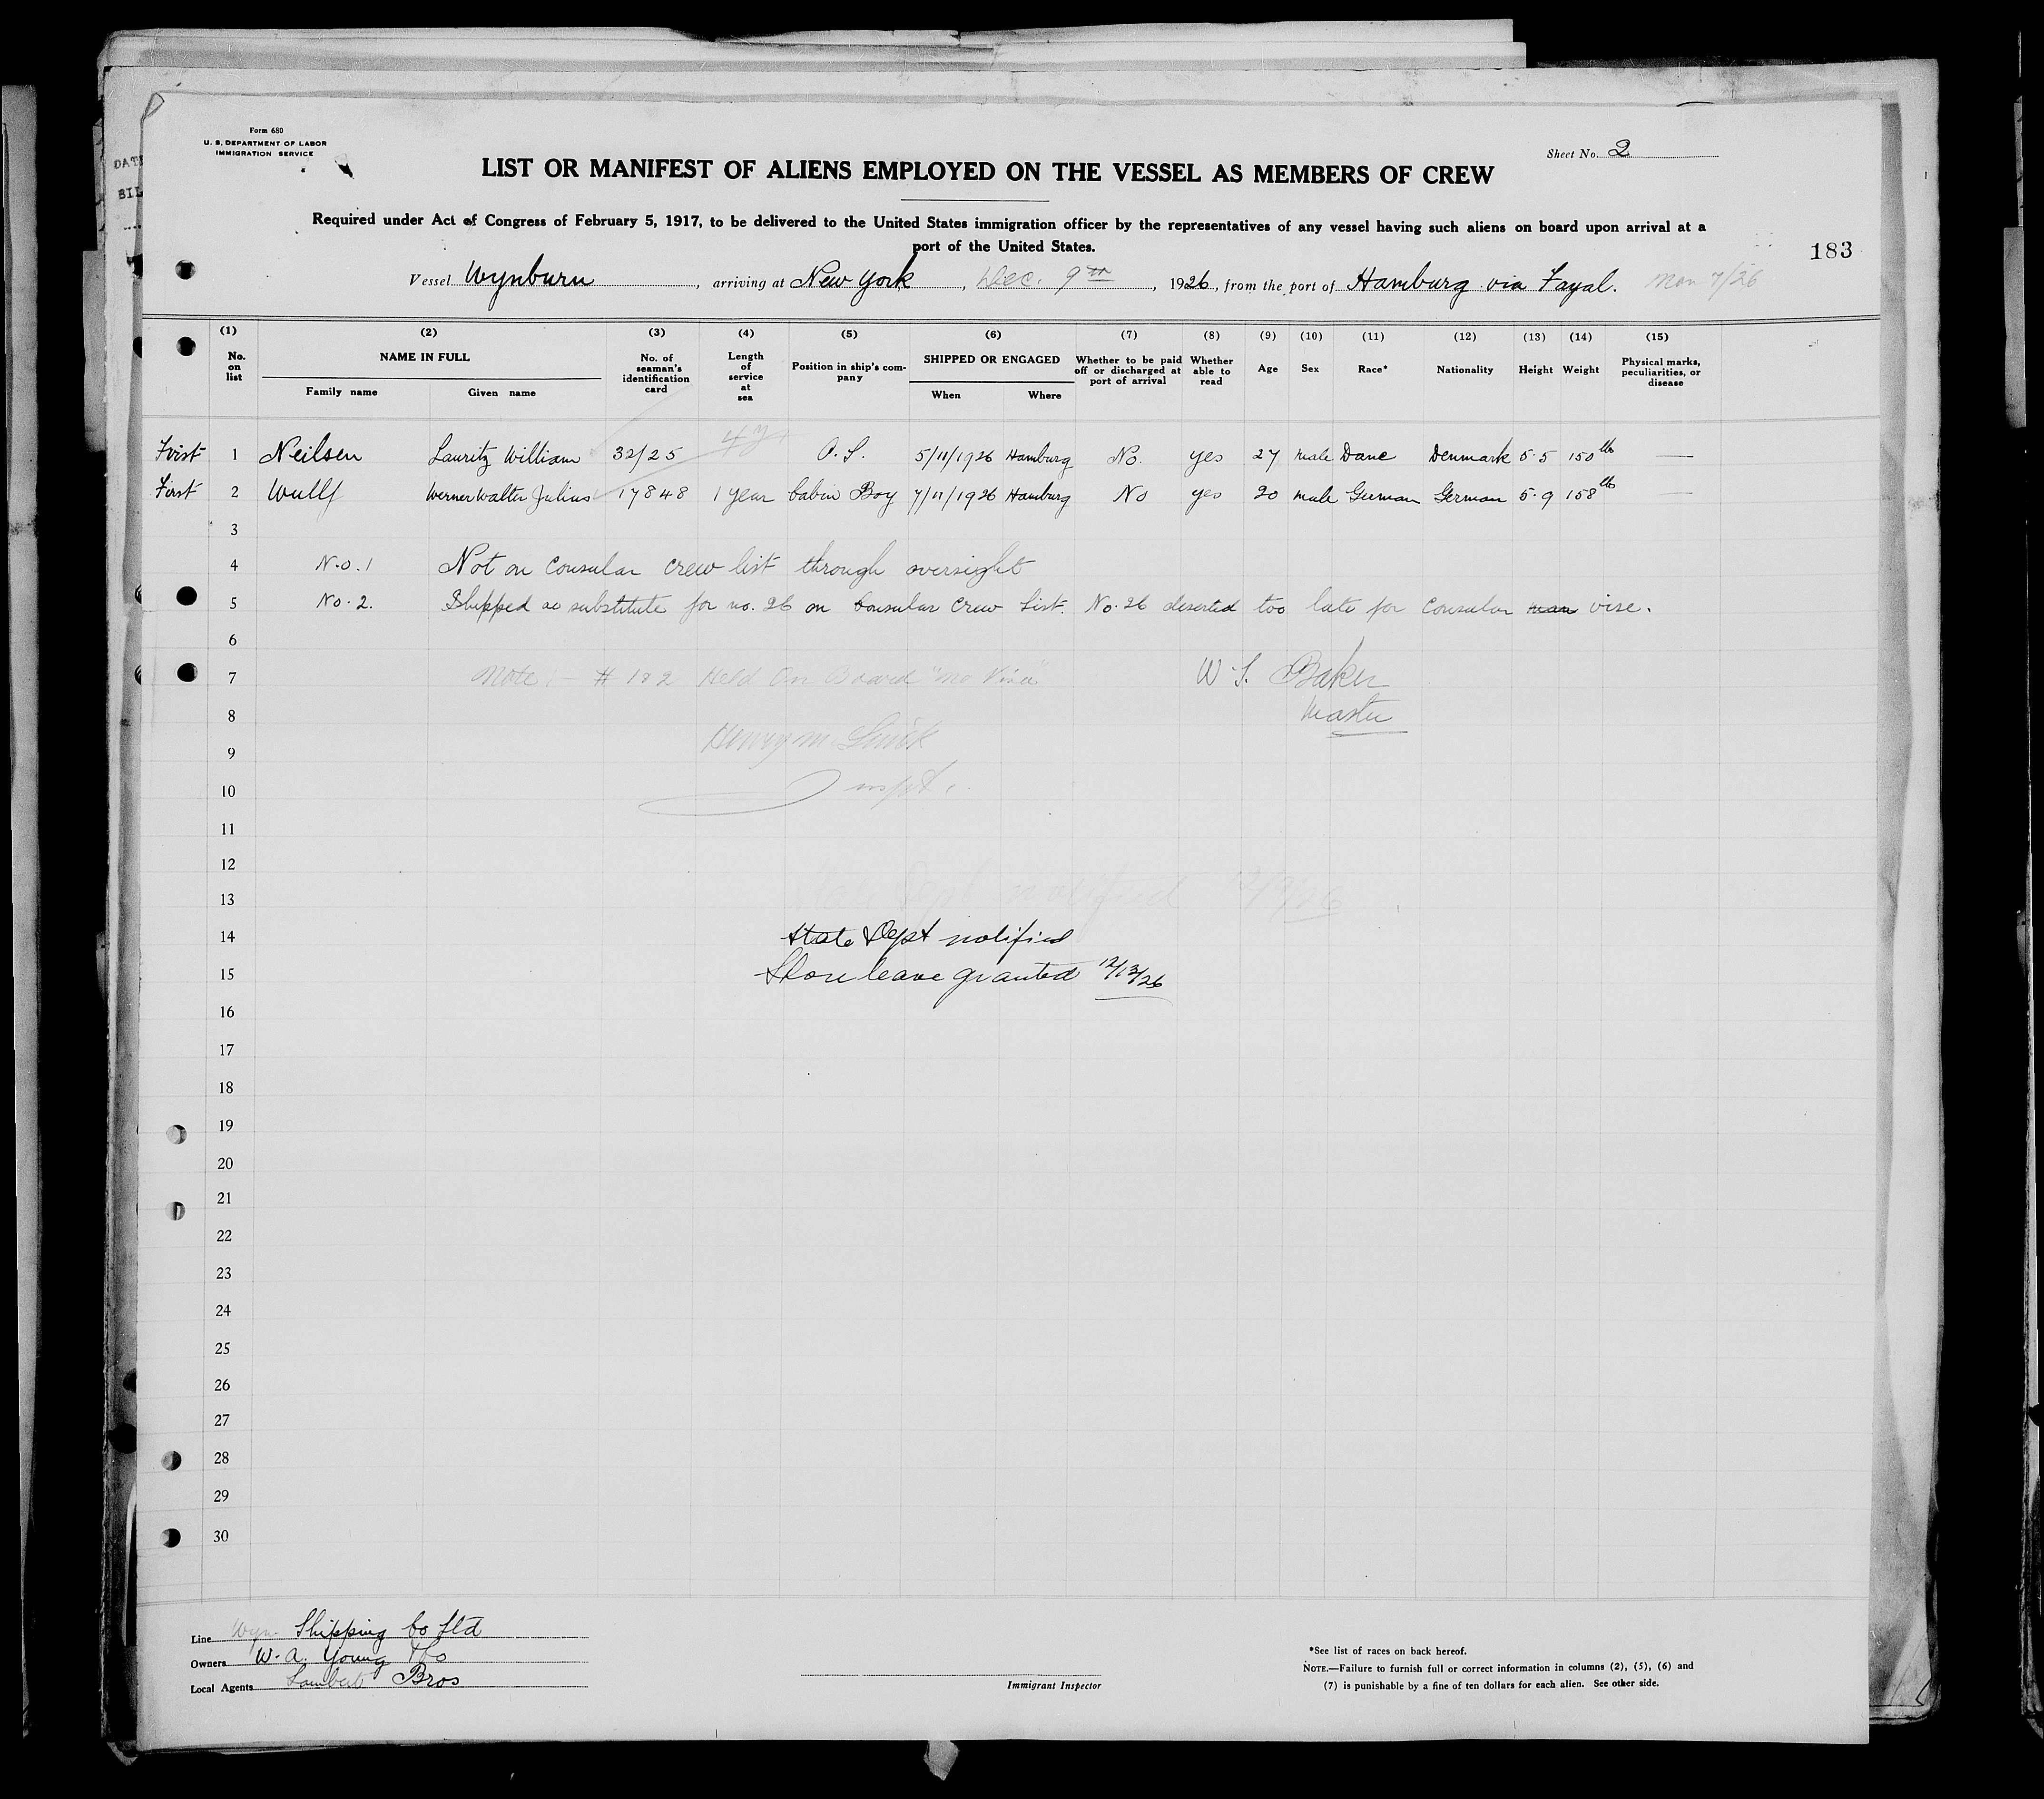 DATE
BIL
Form 680
U. S. DEPARTMENT OF LABOR
IMMIGRATION SERVICE
Sheet No. 2
LIST OR MANIFEST OF ALIENS EMPLOYED ON THE VESSEL AS MEMBERS OF CREW
Required under Act of Congress of February 5, 1917, to be delivered to the United States immigration officer by the representatives of any vessel having such aliens on board upon arrival at a
port of the United States.
183
Vessel Wynburn, arriving at New York, Dec. 9th, 1926, from the port of Hamburg via Fayal.
(1) (2) (3) (4) (5) (6) (7) (8) (9) (10) (11) (12) (13) (14) (15)
No. on list NAME IN FULL Family name Given name No. of seaman's identification card Length of service at sea Position in ship's company SHIPPED OR ENGAGED When Where Whether to be paid off or discharged at port of arrival Whether able to read Age Sex Race* Nationality Height Weight Physical marks, peculiarities, or disease
First 1 Neilsen Lauritz William 32/25 4 y O. S. 5/11/1926 Hamburg No. yes 27 male Dane Denmark 5.5 150 lb —
First 2 Wulff Werner Walter Julius 17848 1 year Cabin Boy 7/11/1926 Hamburg No yes 20 male German German 5.9 158 lb —
3
4 No. 1 Not on Consular crew list through oversight
5 No. 2. Shipped as substitute for no. 26 on Consular Crew List. No. 26 deserted too late for Consular man vise.
6
7 Note:- # 1 & 2 Held On Board "no Visa" W. S. Baker
8 Master
9 Henry M.
10 Inspt.
11
12
13 State Dept notified 12/9/26
14 State Dept notified
15 Shore leave granted 12/13/26
16
17
18
19
20
21
22
23
24
25
26
27
28
29
30
Line Wyn Shipping Co Ltd
Owners W. A. Young & Co
Local Agents Lambert Bros
Immigrant Inspector
*See list of races on back hereof.
NOTE.—Failure to furnish full or correct information in columns (2), (5), (6) and
(7) is punishable by a fine of ten dollars for each alien. See other side.